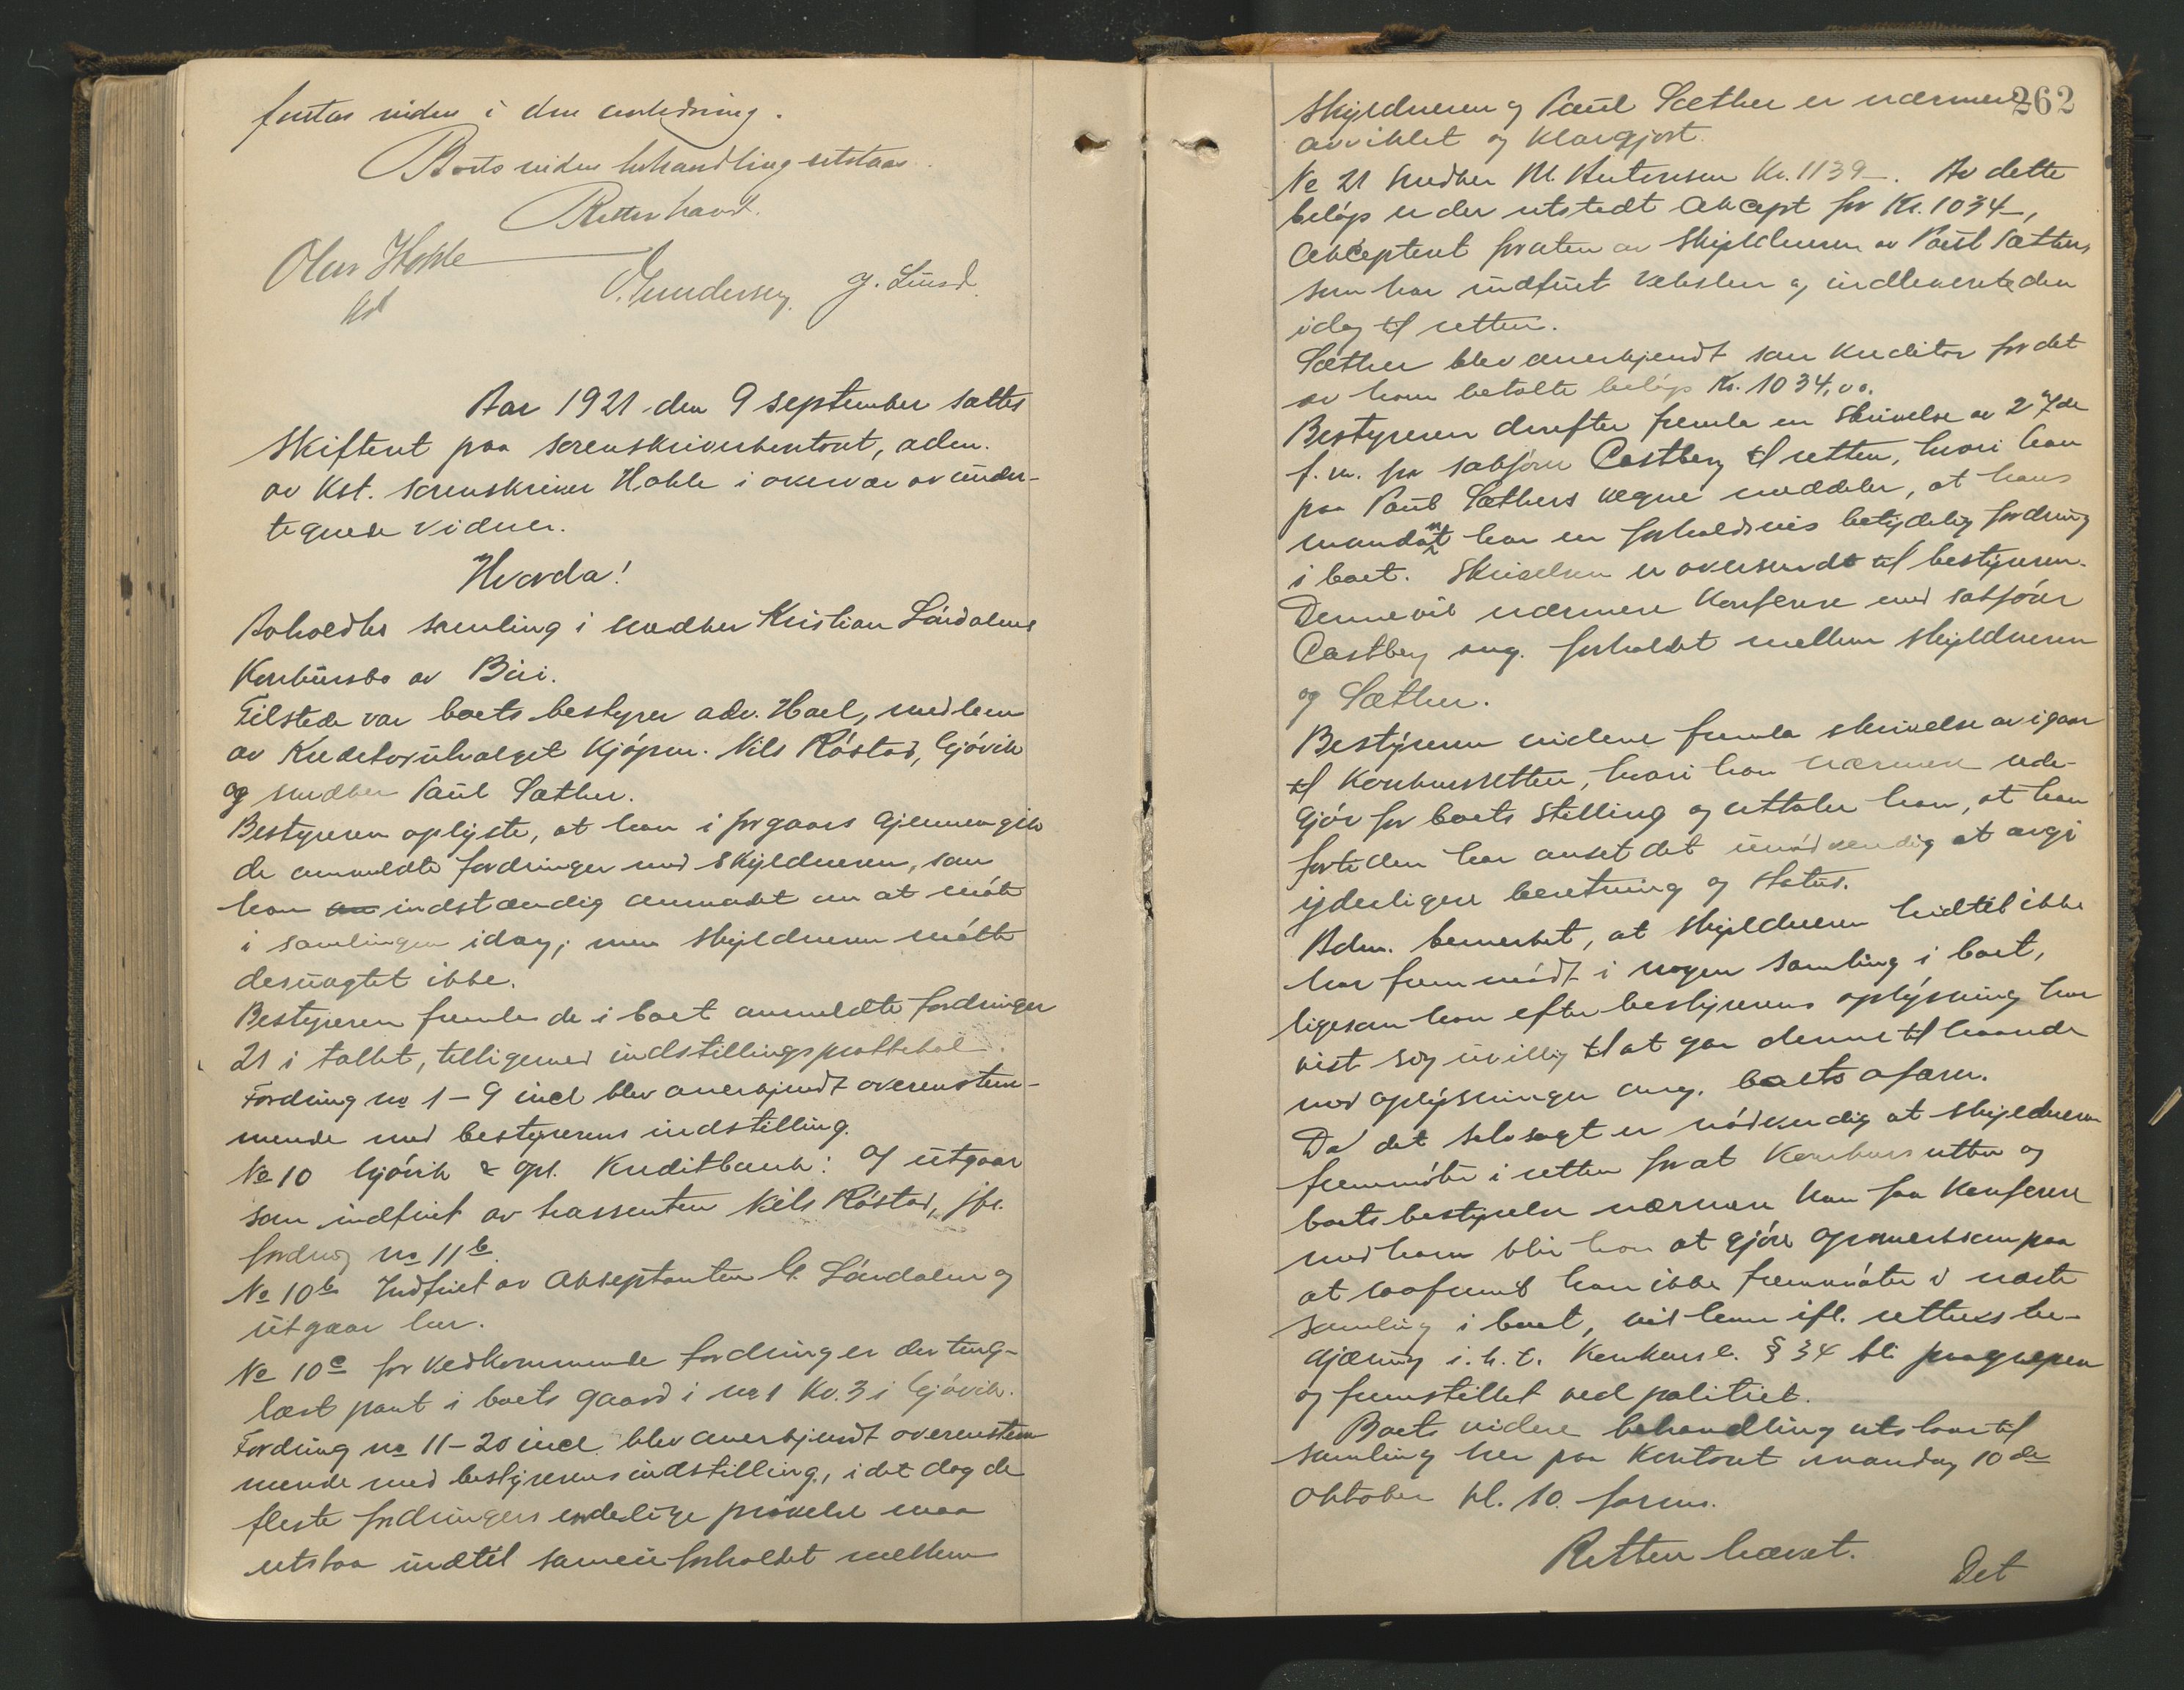 foretas videre i den anledning.
Boets videre behandling utstaar.
Retten hævet.
Olav Hohle
kst
O. Gundersen. J. Lund.
Aar 1921 den 9 september sattes
skifteret paa sorenskriverkontoret, adm.
av Kst. sorenskriver Hohle i overvær av under-
tegnede vidner.
Hvorda!
Avholdtes samling i snedker Kristian Lárdalens
Konkursbo av Biri.
Tilstede var boets bestyrer adv. Hoel, medlem
av Kreditorutvalget Kjøpm. Nils Røstad, Gjøvik
og snedker Paul Sæther.
Bestyreren oplyste, at han i forgaars gjennemgik
de anmeldte fordringer med skyldneren, som
han indstændig anmodet om at møte
i samlingen idag; men skyldneren møtte
desuagtet ikke.
Bestyreren fremla de i boet anmeldte fordringer
21 i tallet, tilligemed indstillingsprottokol.
Fordring no 1 – 9 incl blev anerkjendt overenstem-
mende med bestyrerens indstilling.
No 10 Gjøvik & Opl. Kreditbank: a) utgaar
som indfriet av trassenten Nils Røstad, jfr.
fordring no 11b.
No 10b Indfriet av Akseptanten G. Lárdalen og
utgaar her.
No 10c for vedkommende fordring er der ting-
læst pant i boets gaard i no 1 Kv. 3 i Gjøvik.
Fordring no 11 – 20 incl. blev anerkjendt overenstem
mende med bestyrerens indstilling, idet dog de
fleste fordringers endelige prøvelse maa
utstaa indtil samein forholdet mellem
262
Skyldneren og Paul Sæther er nærmere
avviklet og klargjort.
No 21 Snedker M. Antonsen Kr. 1139 –. Av dette
beløp er der utstedt akcept for Kr. 1034 –,
Akcepteret foruten av skyldneren av Paul Sæther,
som har indfriet vekslen og indleverte den
idag til retten.
Sæther blev anerkjendt som kreditor for det
av ham betalte beløp Kr. 1034,00.
Bestyreren derefter fremla en skrivelse av 27de
f. m. fra sakfører Castberg til retten, hvori han
paa Paul Sæthers vegne meddeler, at hans
mandant har en forholdsvis betydelig fordring
i boet. Skrivelsen er oversendt til bestyreren.
Denne vil nærmere konferere med sakfører
Castberg ang. forholdet mellem skyldneren
og Sæther.
Bestyreren videre fremla skrivelse av igaar
til Konkursretten, hvori han nærmere rede-
gjør for boets stilling og uttaler han, at han
fortiden har anset det unødvendig at avgi
yderligere beretning og status.
Adm. bemerket, at skyldneren hidtil ikke
har fremmødt i nogen samling i boet,
ligesom han efter bestyrerens oplysning har
vist sig uvillig til at gaa denne til haande
med oplysninger ang. boets afærer.
Da det selvsagt er nødvendig at skyldneren
fremmøter i retten for at Konkursretten og
boets bestyrelse nærmere kan faa konferere
med ham blir han at gjøre opmerksom paa
at saafremt han ikke fremmøter i næste
samling i boet, vil han ifl. rettens be-
gjæring i. h. t. Konkursl. § 34 bli paagrepen
og fremstillet ved politiet.
Boets videre behandling utstaar til
samling her paa Kontoret mandag 10de
Oktober kl. 10 form.
Retten hævet.
Det